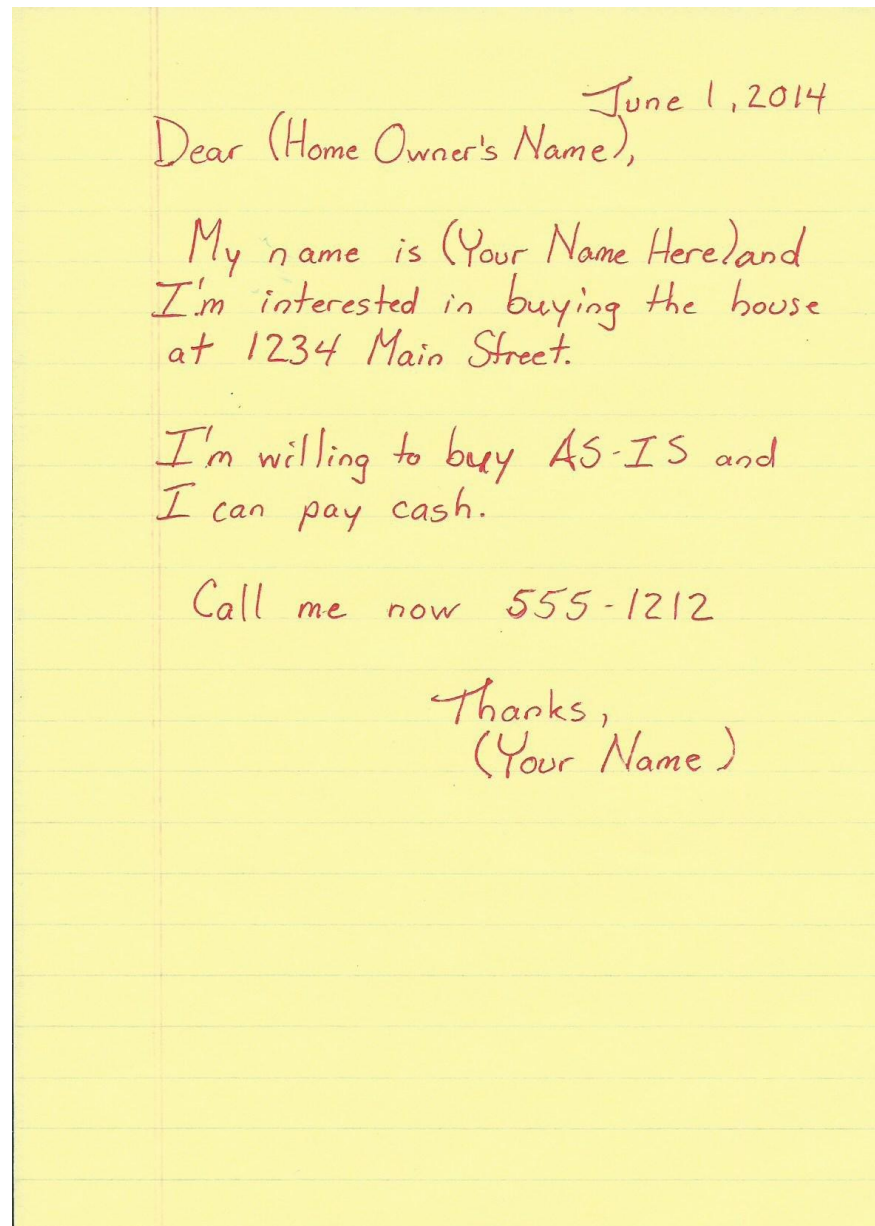 June 1, 2014
Dear (Home Owner's Name),
My name is (Your Name Here) and
I'm interested in buying the house
at 1234 Main Street.
I'm willing to buy AS-IS and
I can pay cash.
Call me now 555-1212
Thanks,
(Your Name)